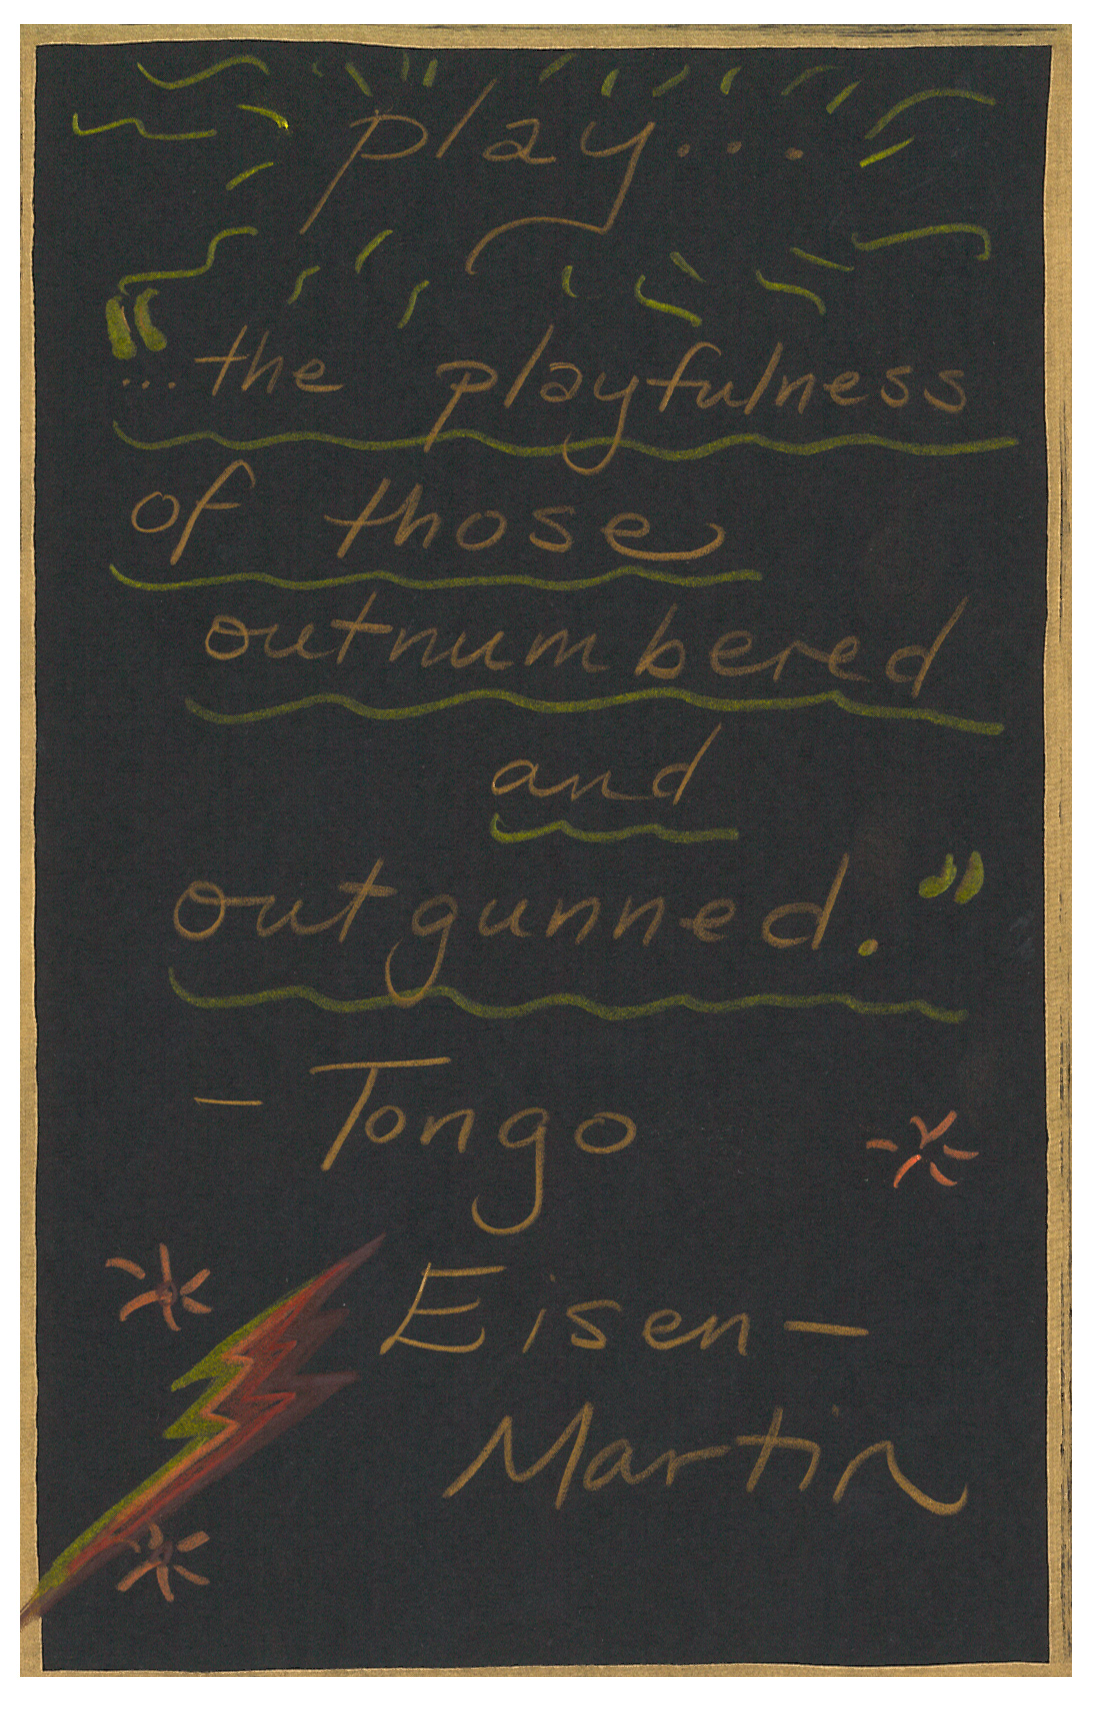 play...
"...the playfulness
of those
outnumbered
and
outgunned."
- Tongo
Eisen-
Martin